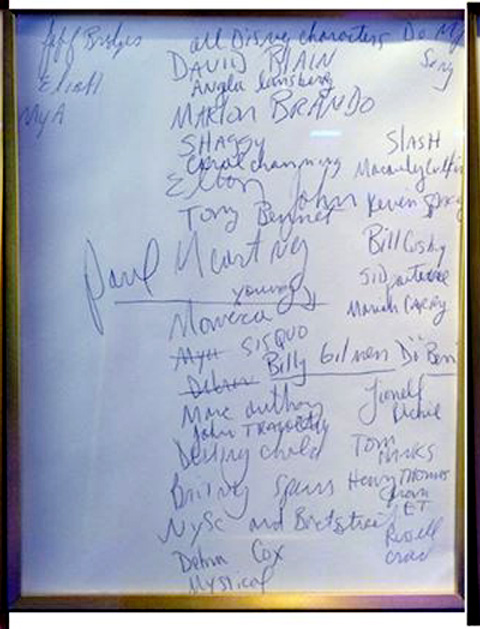 Jeff Bridges
Eliott
MyA
all Disney characters Do My
Song
DAVID BLAIN
Angla lansberg
MARlon BRANDO
SHAGGY
SlASH
Carol channing
Elton John
Kevin
Tony Bennet
Bill Cosby
Paul Mcartney
SiD
young
Mariah CAREY
Monica
Mya SISQUO
Debra Billy Gilmen
Marc anthony
Jonell
Richie
John TRAVOLTA
Destiny child
TOM
HANKS
Britney Spears
Henry THOMAS
from
ET
NySc and
Russell
crow
Debra Cox
Mystical